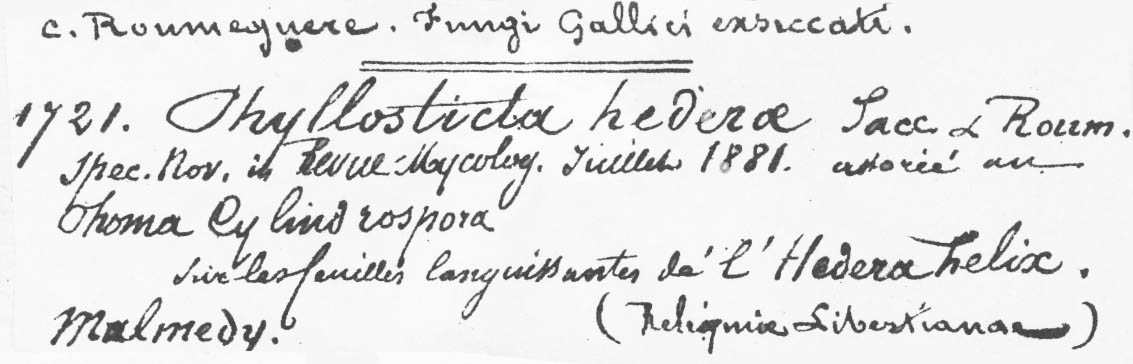 C. Roumeguere. Fungi Gallici exsiccati.
1721. Phyllosticta hederæ Sacc & Roum.
spec. Nov. in Revue Mycolog. Juillet 1881. associé au
Phoma Cylindrospora
sur les feuilles languissantes de l'Hedera helix.
Malmedy. (Reliquiæ Libertianae)